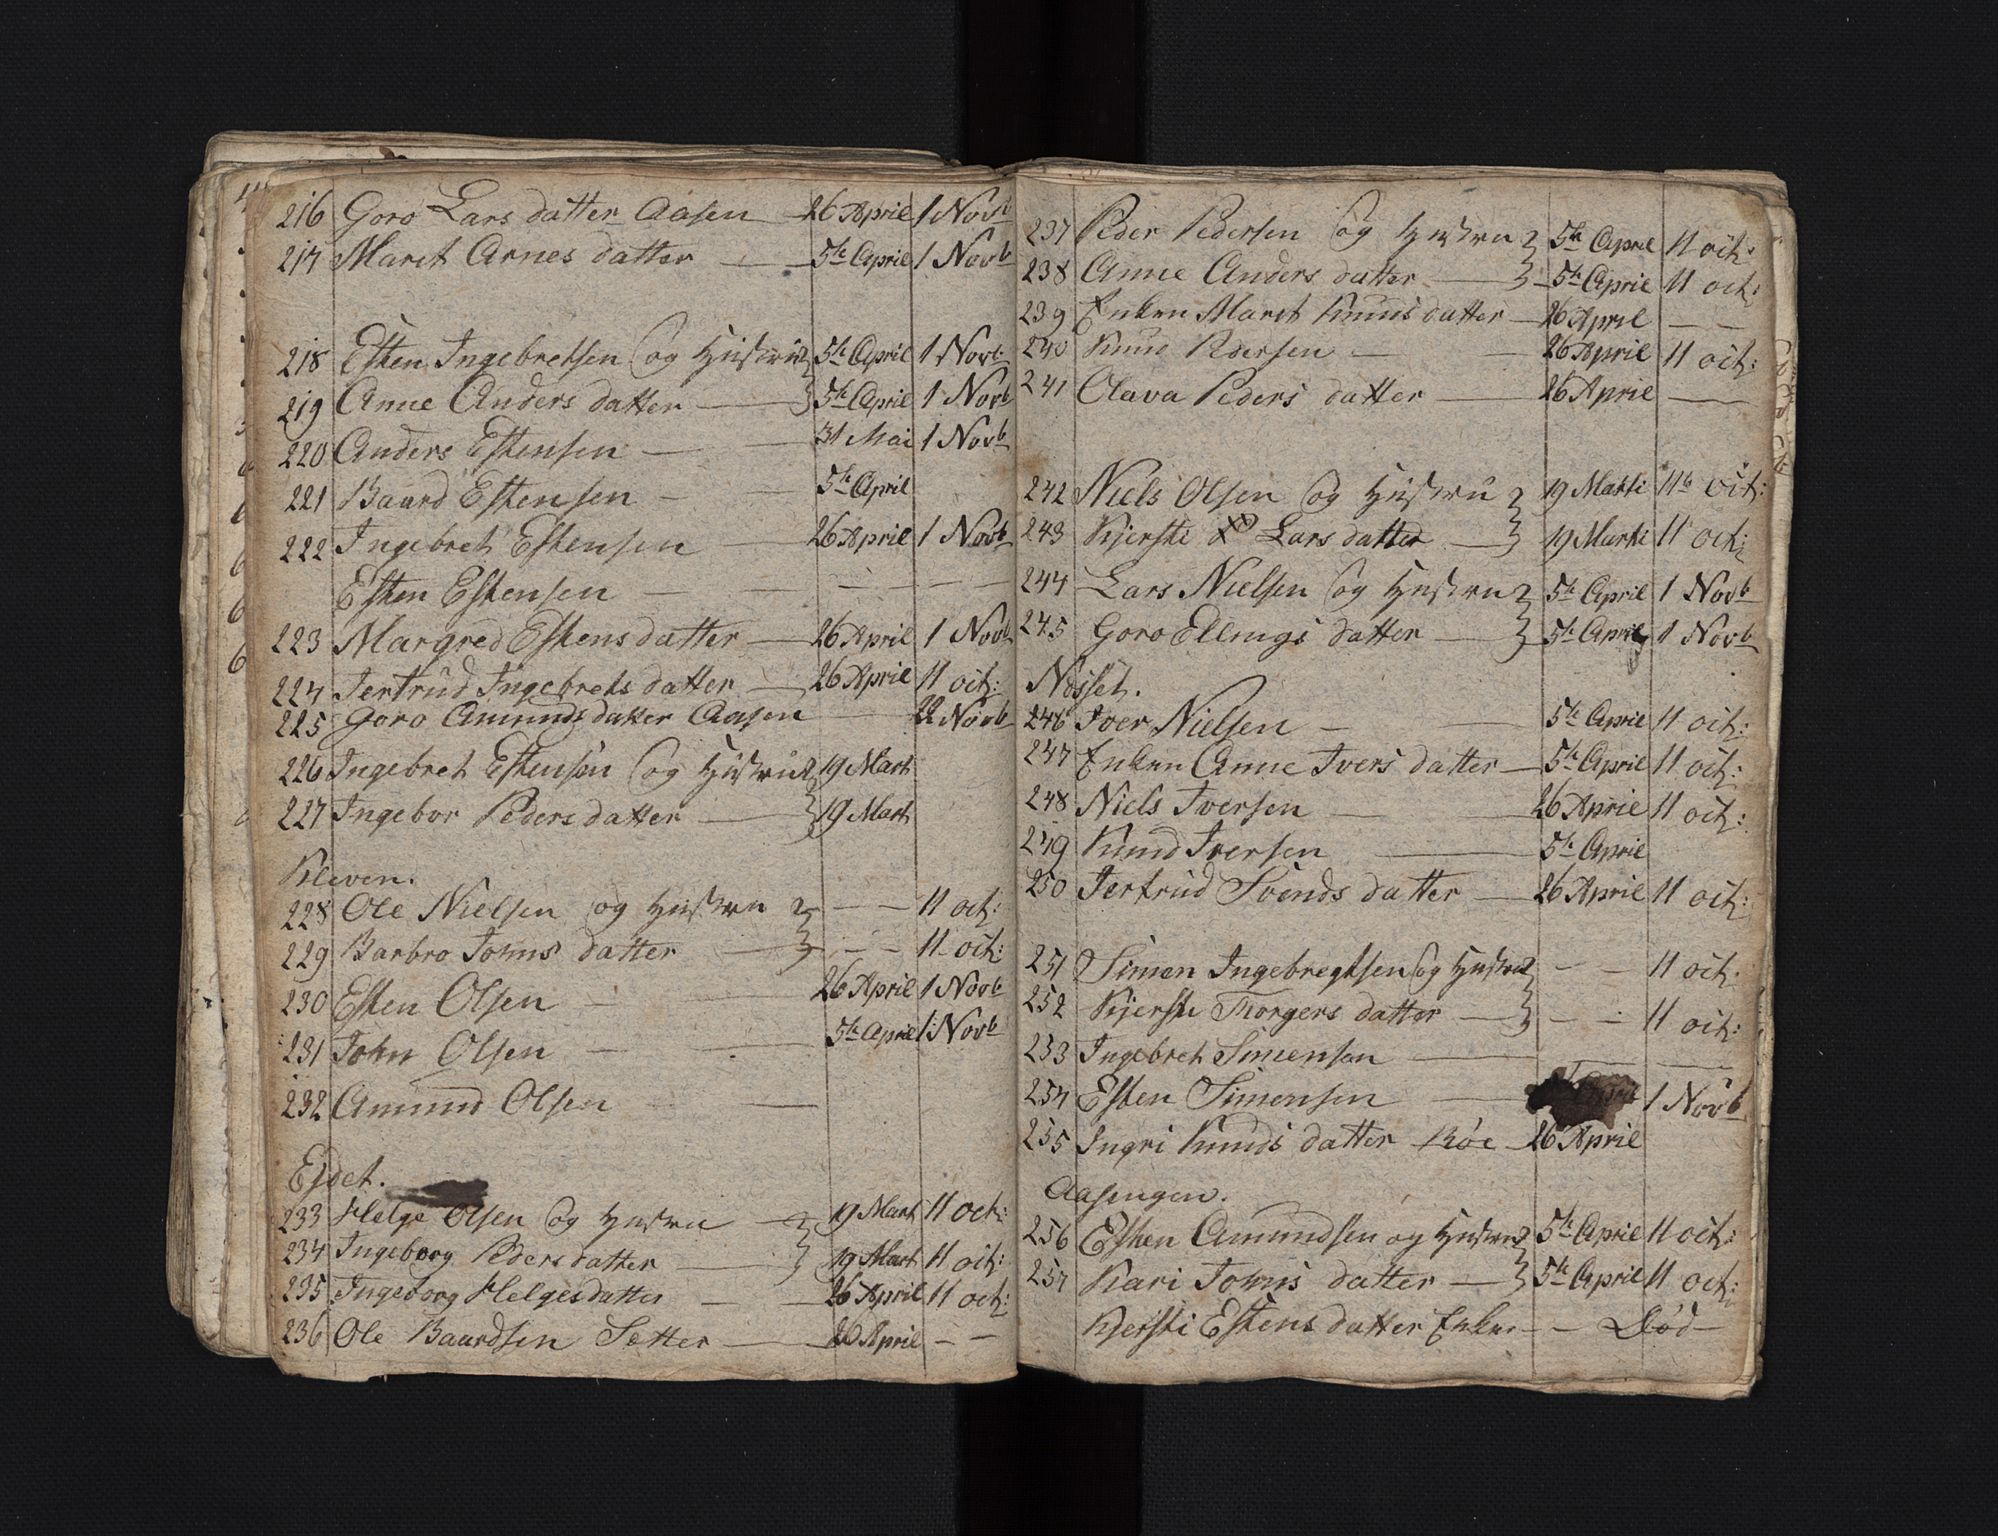 216 Goro Lars datter Aasen — 26 April 1 Novb
217 Marit Arnes datter — 5te April 1 Novb
218 Esten Ingebretsen og Hustru 5te April 1 Novb:
219 Anne Anders datter — 5te April 1 Novb
220 Anders Estensen — 31 Mai 1 Novb
221 Baard Estensen — 5te April
222 Ingebret Estensen — 26 April 1 Novb
Esten Estensen — — — —
223 Margred Estens datter — 26 April 1 Novb
224 Jertrud Ingebrets datter — 26 April 11 oct:
225 Goro Amunds datter Aasen — 22 Novb
226 Ingebret Estensen og Hustru 19 Mart
227 Ingebor Peders datter — 19 Mart
Kleven.
228 Ole Nielsen og Hustru — — 11 oct:
229 Barbro Johns datter — — — 11 oct:
230 Esten Olsen — 26 April 1 Novb
231 John Olsen — 5te April 1 Novb
232 Amund Olsen — —
Ejdet.
233 Helge Olsen og Hustru — 19 Mart 11 oct:
234 Ingeborg Peders datter — 19 Mart 11 oct:
235 Ingeborg Helgesdatter — 26 April 11 oct:
236 Ole Baardsen Setter — 26 April — —
237 Peder Pedersen og Hustru 5te April 11 oct:
238 Anne Anders datter — 5te April 11 oct:
239 Enken Marit Knuds datter — 26 April — —
240 Knud Pedersen — 26 April 11 oct:
241 Olava Peders datter — 26 April —
242 Niels Olsen og Hustru 19 Marti 11te oct:
243 Kjersti Lars datter — 19 Marti 11 oct:
244 Lars Nielsen og Hustru 5te April 1 Novb
245 Goro Ellings datter — 5te April 1 Novb
Nøsset.
246 Iver Nielsen — 5te April 11 oct:
247 Enken Anne Ivers datter — 5te April 11 oct:
248 Niels Iversen — 26 April 11 oct:
249 Knud Iversen — 5te April
250 Jertrud Svends datter — 26 April 11 oct:
251 Simen Ingebregtsen og Hustru — — 11 oct.
252 Kjersti Torgers datter — — — 11 oct:
253 Ingebret Simensen — — —
254 Esten Simensen — April 1 Novb
255 Ingri Knuds datter Røe — 26 April
Aasengen.
256 Esten Amundsen og Hustru 5te April 11 oct:
257 Kari Johns datter — 5te April 11 oct:
Kjersti Estens datter Enke — — Død —